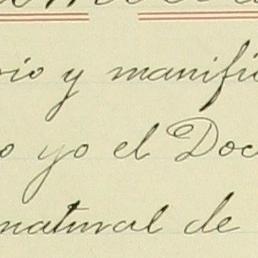 rio y manifie
o yo el Doc
natural de